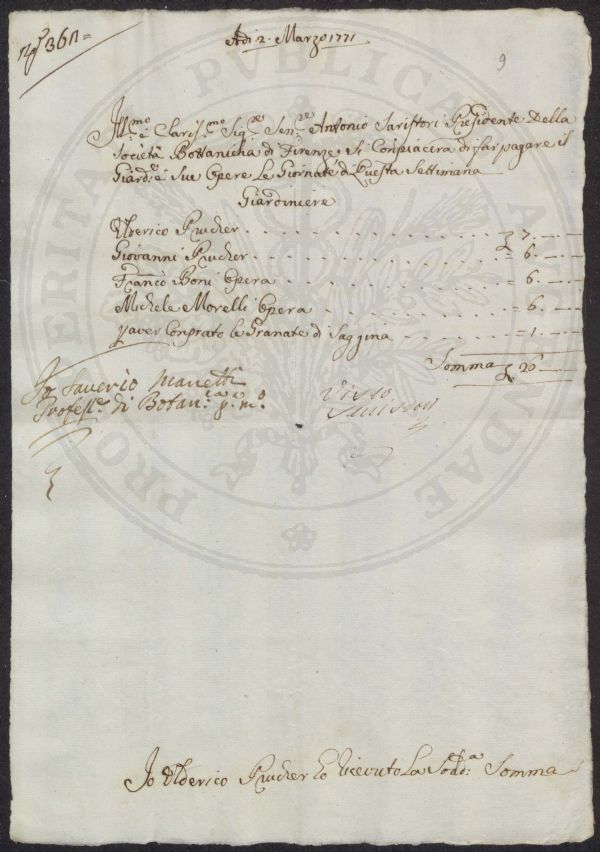 N.º 367=
Adi 2. Marzo 1771
9
Ill:mo e Claris:mo Sig:re Sen:re Antonio Seriftori Presidente Della
Società Bottanicha di Firenze, Si Conpiacerà di far pagare il
Giard:e e Sue Opere Le Giornate di Questa Settimana
Giardiniere
Ulderico Prucher 7. —
Giovanni Prucher = 6. —
Franco Boni Opera = 6. —
Michele Morelli Opera = 6. —
P aver Conprato le Granate di Saggina = 1. —
Somma 26 —
Io Saverio Manetti
Profess:re di Botan:ca
Visto
Io Ulderico Prucher ho Riceuto La Sodd:a Somma
PRO VERITATE PUBLICA